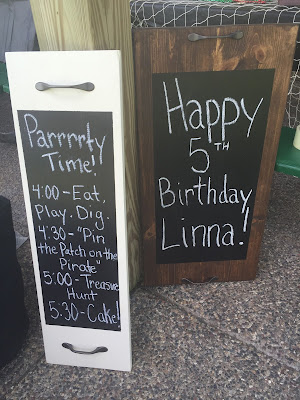 Parrrrty
Time!
4:00-Eat,
Play. Dig.
4:30-"Pin
the Patch on the
Pirate"
5:00-Treasure
Hunt
5:30-Cake!
Happy
5TH
Birthday,
Linna!